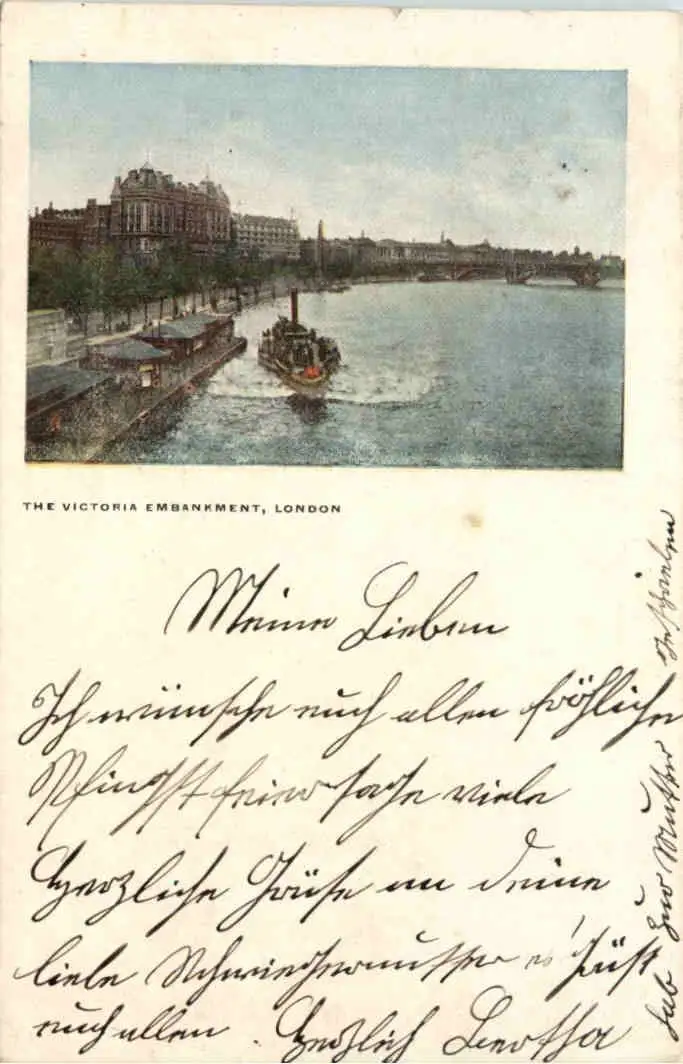 THE VICTORIA EMBANKMENT, LONDON
Meine Lieben
Ich wünsche euch allen fröhliche
Pfingstfeier sage viele
Herzliche Grüße an deine
liebe Schwiegermutter es grüßt
euch allen Herzlich Bertha
hab zur Mutter geschrieben